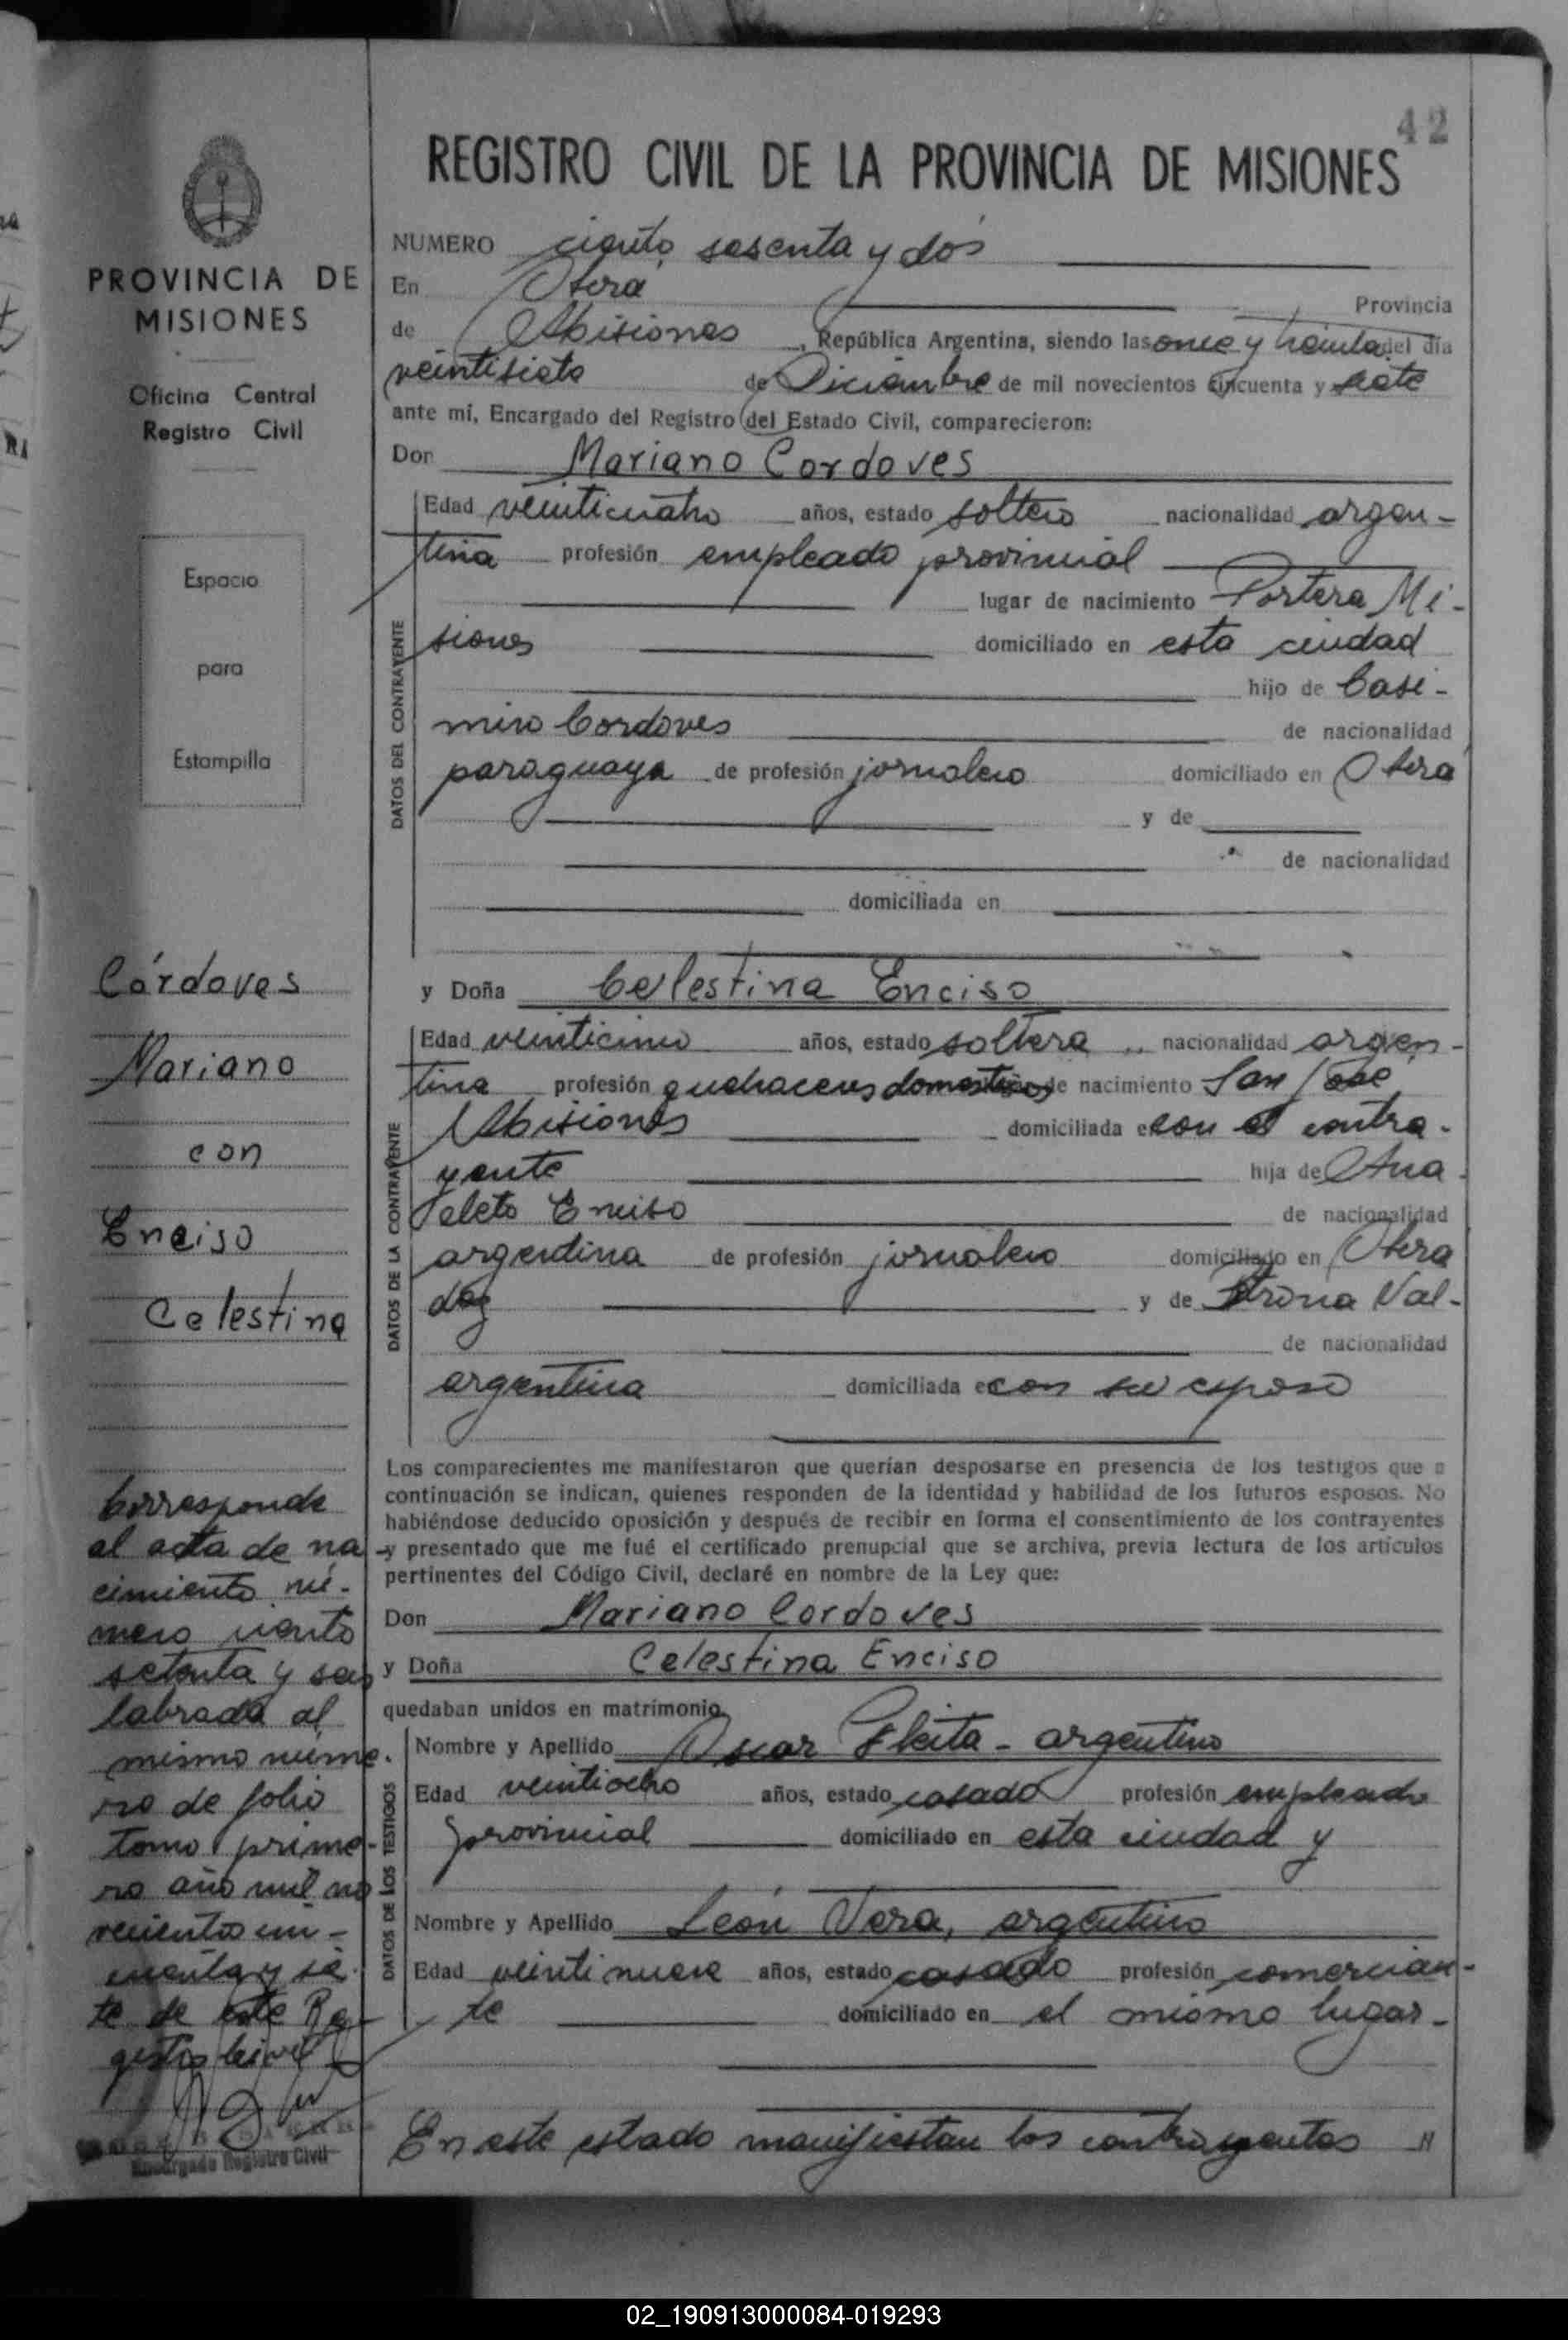 42
REGISTRO CIVIL DE LA PROVINCIA DE MISIONES
PROVINCIA DE
MISIONES
Oficina Central
Registro Civil
Espacio
para
Estampilla
Córdoves
Mariano
con
Enciso
Celestina
Corresponde
al acta de na
cimiento nú-
mero ciento
setenta y seis
labrada al
mismo núme-
ro de folio
tomo prime-
ro año mil no
vecientos cin-
cuenta y sie-
te de este Re-
gistro Civil
Encargado Registro Civil
NUMERO ciento sesenta y dos
En Oberá Provincia
de Misiones, República Argentina, siendo las once y treinta del día
veintisiete de Diciembre de mil novecientos cincuenta y siete
ante mí, Encargado del Registro del Estado Civil, comparecieron:
Don Mariano Cordoves
DATOS DEL CONTRAYENTE
Edad veinticuatro años, estado soltero nacionalidad argen-
tina profesión empleado provincial
lugar de nacimiento Portera Mi-
siones domiciliado en esta ciudad
hijo de Casi-
miro Cordoves de nacionalidad
paraguaya de profesión jornalero domiciliado en Oberá
y de
de nacionalidad
domiciliada en
y Doña Celestina Enciso
DATOS DE LA CONTRAYENTE
Edad veinticinco años, estado soltera nacionalidad argen-
tina profesión quehaceres domesticos de nacimiento San José
Misiones domiciliada e con el contra-
yente hija de Ana-
cleto Enciso de nacionalidad
argentina de profesión jornalero domiciliado en Oberá
y de Val-
dez de nacionalidad
argentina domiciliada e con su esposo
Los comparecientes me manifestaron que querían desposarse en presencia de los testigos que a
continuación se indican, quienes responden de la identidad y habilidad de los futuros esposos. No
habiéndose deducido oposición y después de recibir en forma el consentimiento de los contrayentes
y presentado que me fué el certificado prenupcial que se archiva, previa lectura de los artículos
pertinentes del Código Civil, declaré en nombre de la Ley que:
Don Mariano Cordoves
y Doña Celestina Enciso
quedaban unidos en matrimonio.
DATOS DE LOS TESTIGOS
Nombre y Apellido Oscar Fleita - argentino
Edad veintiocho años, estado casado profesión empleado
provincial domiciliado en esta ciudad y
Nombre y Apellido León Vera, argentino
Edad veintinueve años, estado casado profesión comercian-
te domiciliado en el mismo lugar-
En este estado manifiestan los contrayentes
02_190913000084-019293